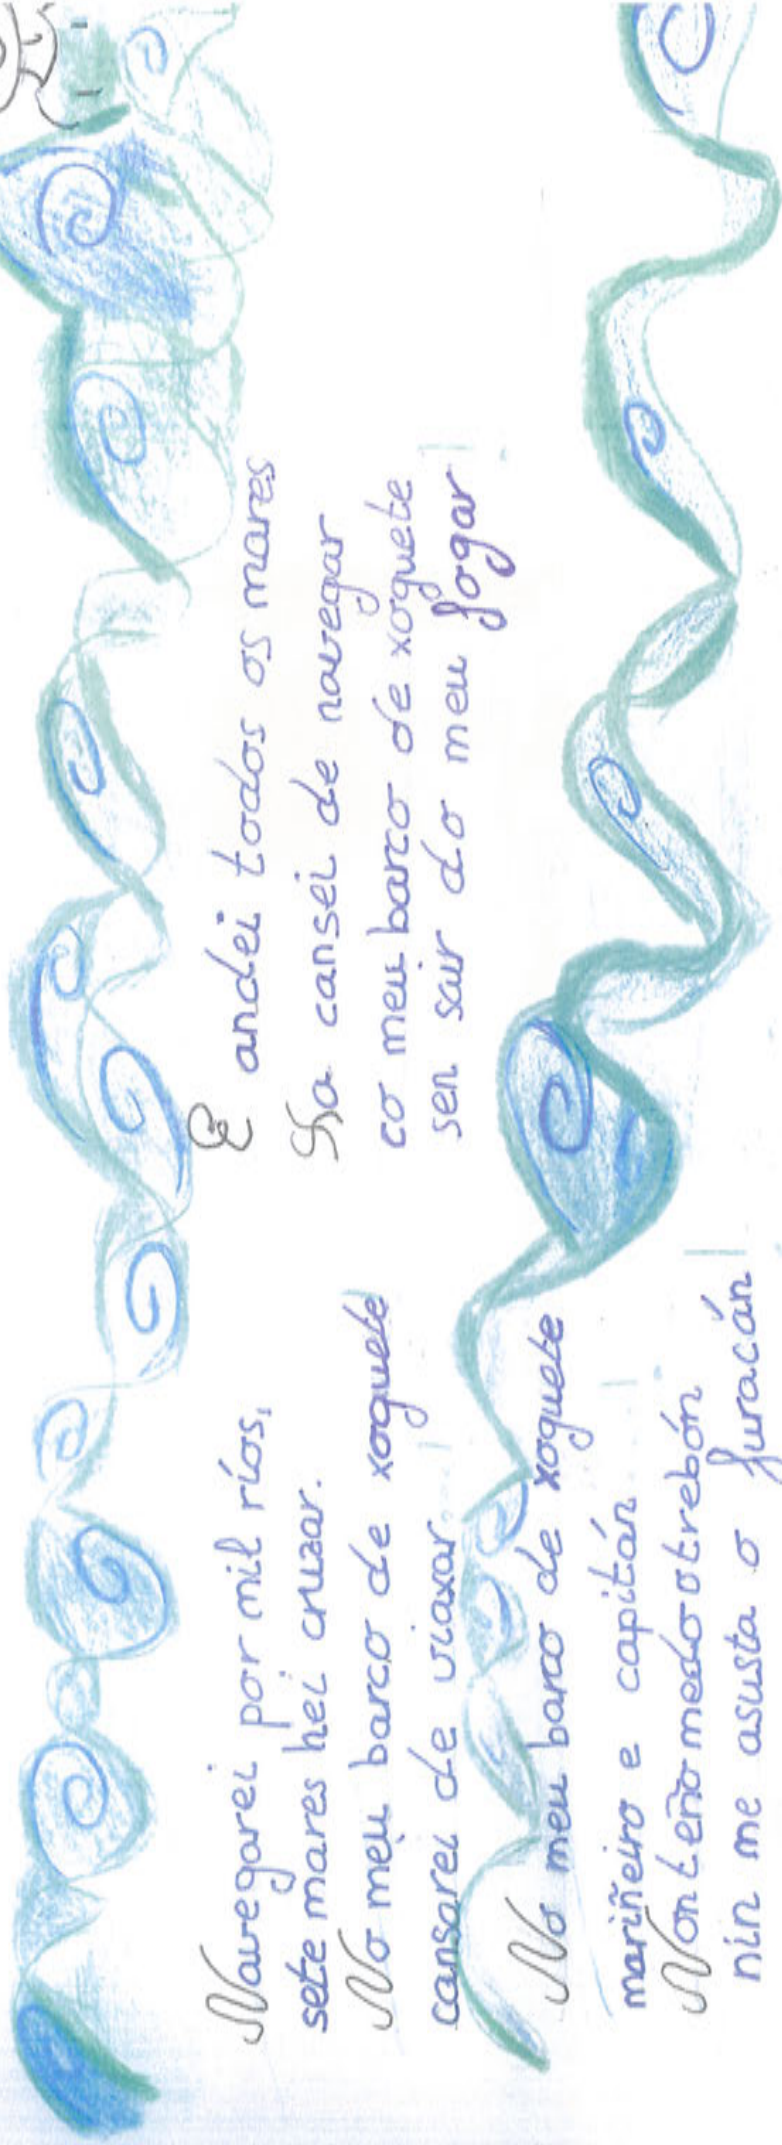 Navegarei por mil ríos,
sete mares hei cruzar.
No meu barco de xoguete
cansarei de viaxar.
No meu barco de xoguete
mariñeiro e capitán
Non teño medo o trebón
nin me asusta o furacán
E andei todos os mares
Xa cansei de navegar
co meu barco de xoguete
sen saír do meu fogar